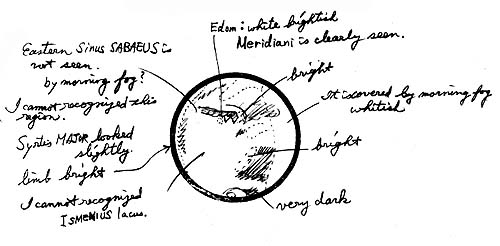 Edom: white brightish
Meridiani is clearly seen.
Eastern Sinus SABAEUS is
not seen.
by morning fog?
I cannot recognized this
region.
Syrtis MAJOR looked
slightly.
limb bright
I cannot recognized
ISMENIUS lacus.
bright
It is covered by morning fog
whitish
bright
very dark